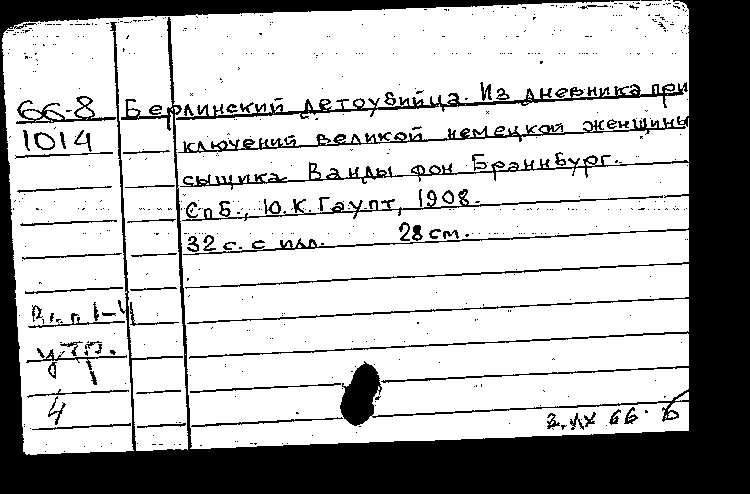 66-8 Берлинский детоубийца. Из дневника при
1014 ключений великой немецкой женщины
сыщика Ванды фон Браннбург.
СпБ., Ю.К.Гаупт, 1908.
32 с. с илл. 28 см.
Вып 1-4
утр.
4
3.IX 66.